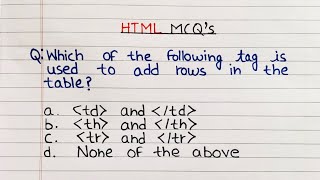 HTML MCQ's
Q: Which of the following tag is
used to add rows in the
table?
a. <td> and </td>
b. <th> and </th>
c. <tr> and </tr>
d. None of the above